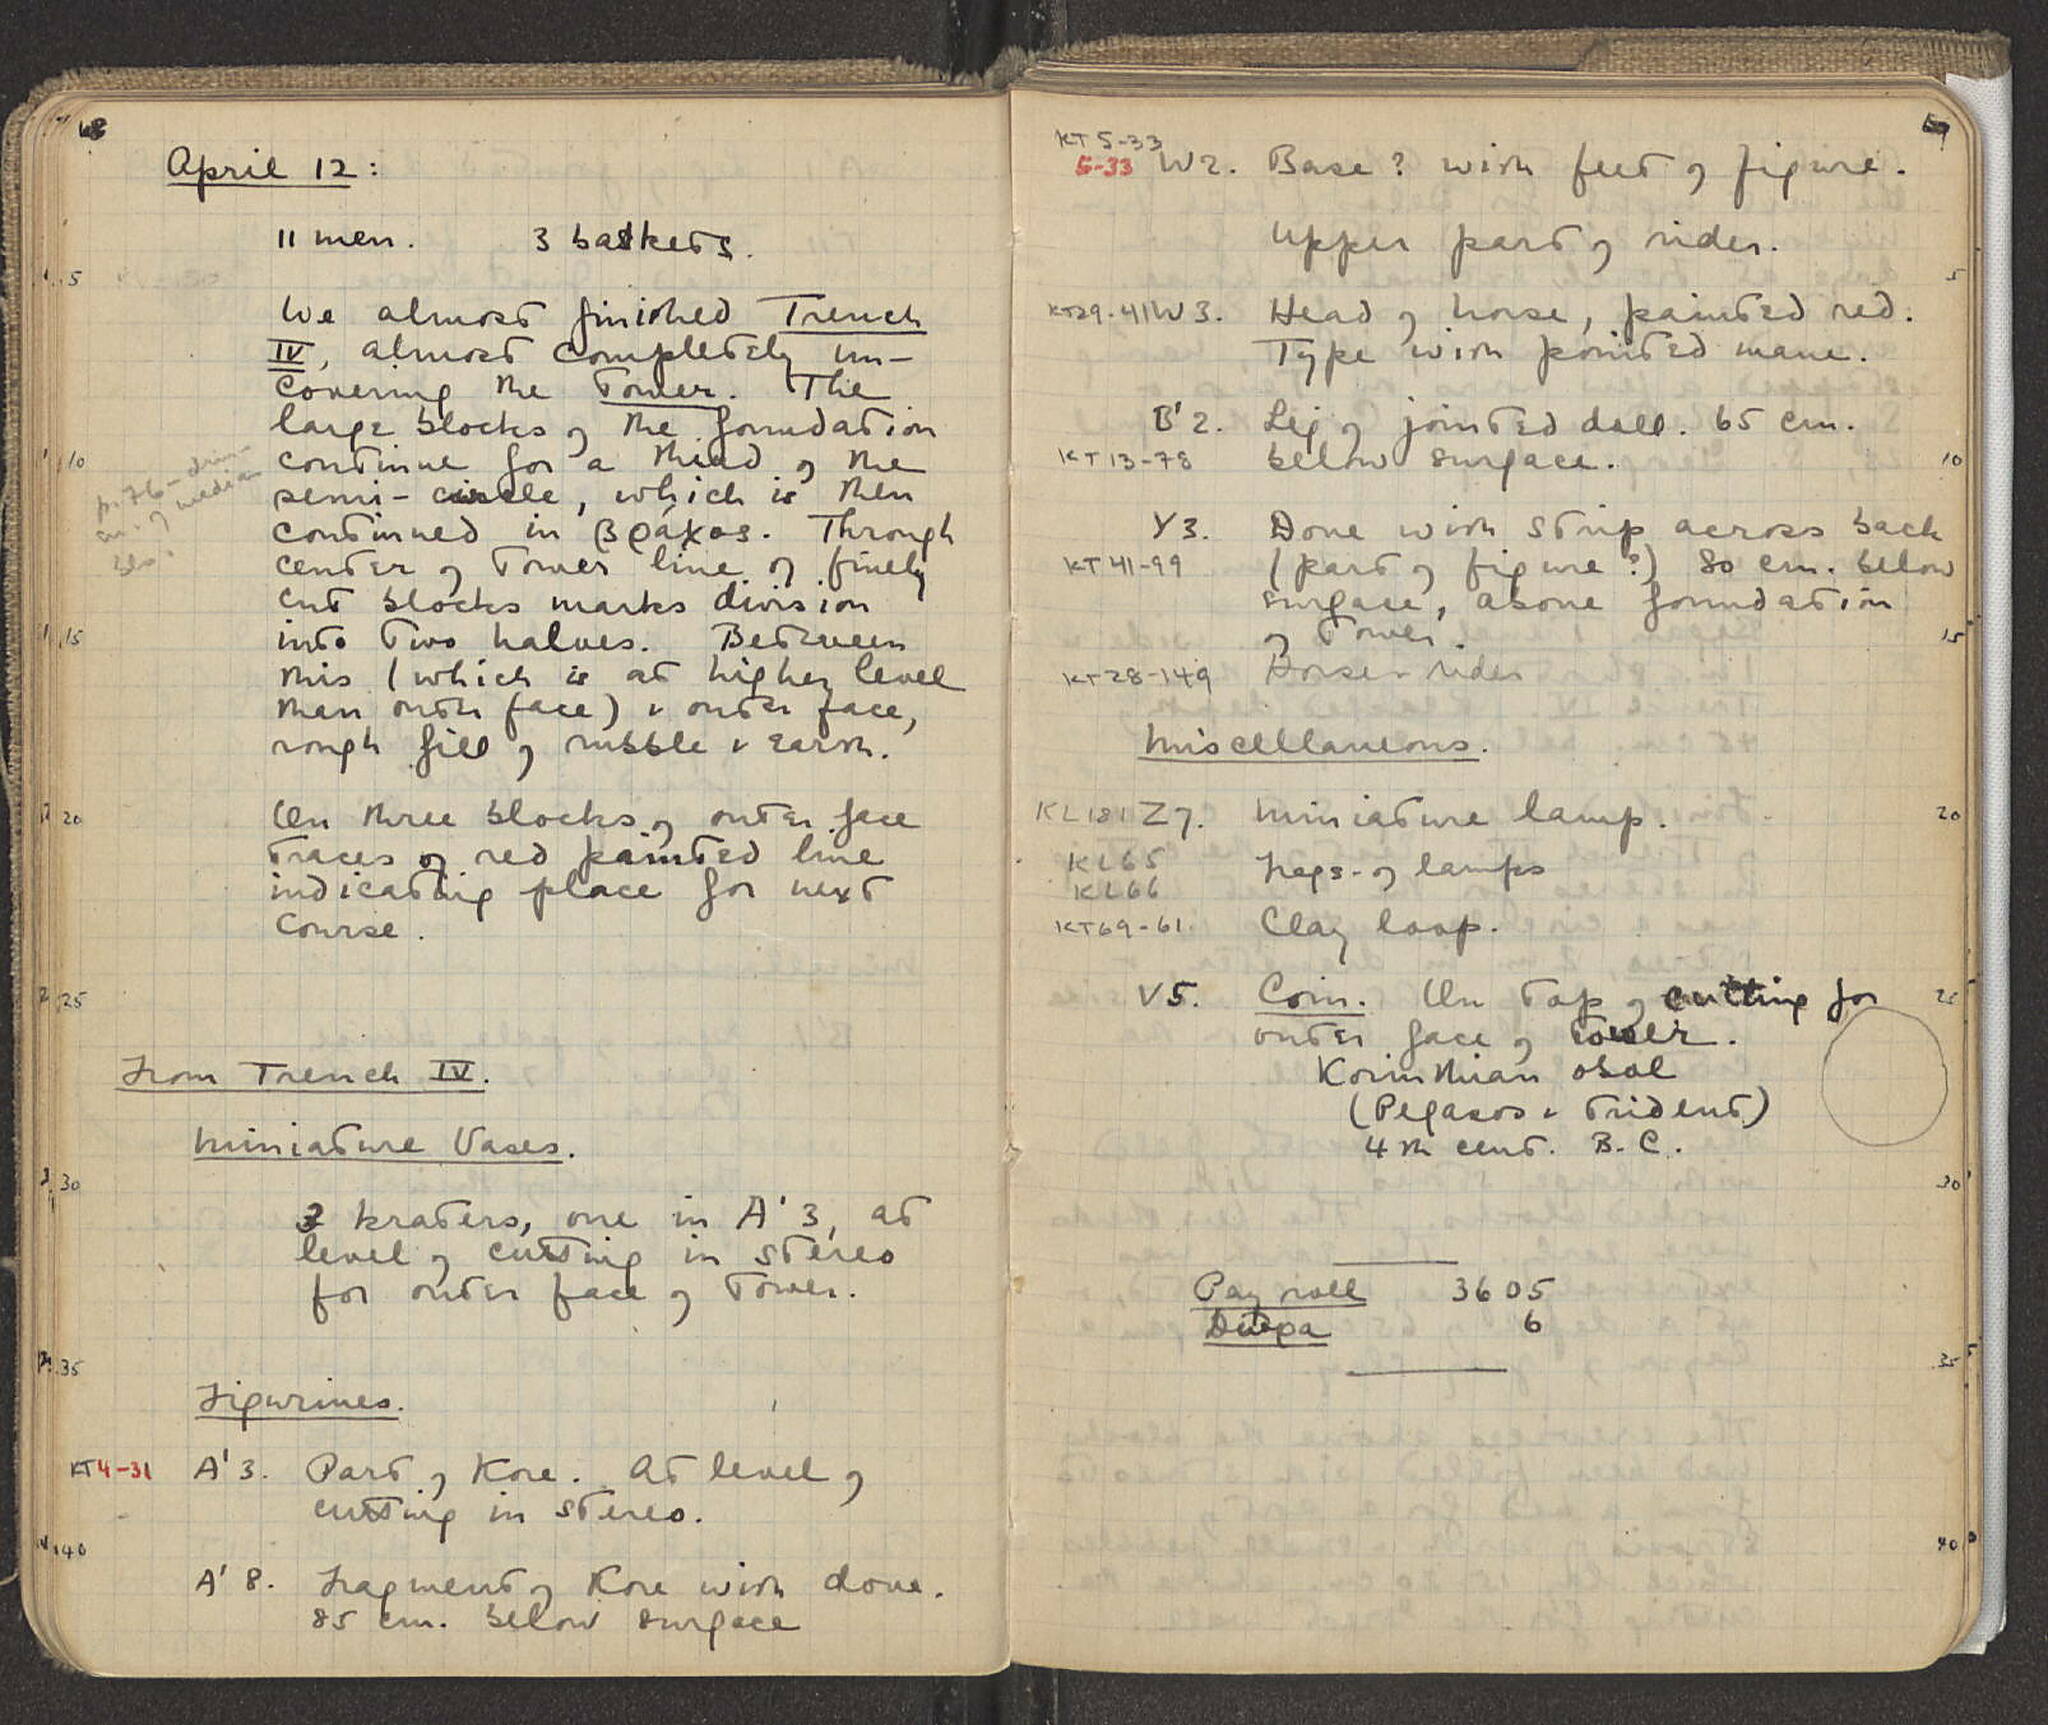 68
April 12:
11 men. 3 baskets.
5
We almost finished Trench
IV, almost completely un-
covering the Tower. The
large blocks of the foundation
10
continue for a third of the
semi-circle, which is then
continued in βράχος. Through
center of Tower line of finely
cut blocks marks division
15
into two halves. Between
this (which is at higher level
than outer face) & outer face,
rough fill of rubble & earth.
p. 76 -
of median
20
On three blocks of outer face
traces of red painted line
indicating place for next
course.
25
From Trench IV.
Miniature Vases.
30
2 kraters, one in A'3, at
level of cutting in stereo
for outer face of Tower.
35
Figurines.
KT4-31 A'3. Part of Kore. At level of
cutting in stereo.
40
A'8. Fragment of Kore with dove.
85 cm. below surface
69
KT 5-33
5-33 W2. Base? with feet of figure.
Upper part of rider.
5
KT29-41 W3. Head of horse, painted red.
Type with pointed mane.
B'2. Leg of jointed doll. 65 cm.
KT13-78 below surface. 10
Y3. Dove with strip across back
KT41-99 (part of figure?) 80 cm. below
surface, above foundation
of Tower. 15
KT28-149 Horse & rider
Miscellaneous.
KL181 Z7. Miniature lamp. 20
KL65 Frgs. of lamps
KL66
KT69-61. Clay loop.
V5. Coin. On top of cutting for 25
outer face of tower.
Korinthian obol
(Pegasos & trident)
4th cent. B.C.
30
Pay roll 3605
6
35
40